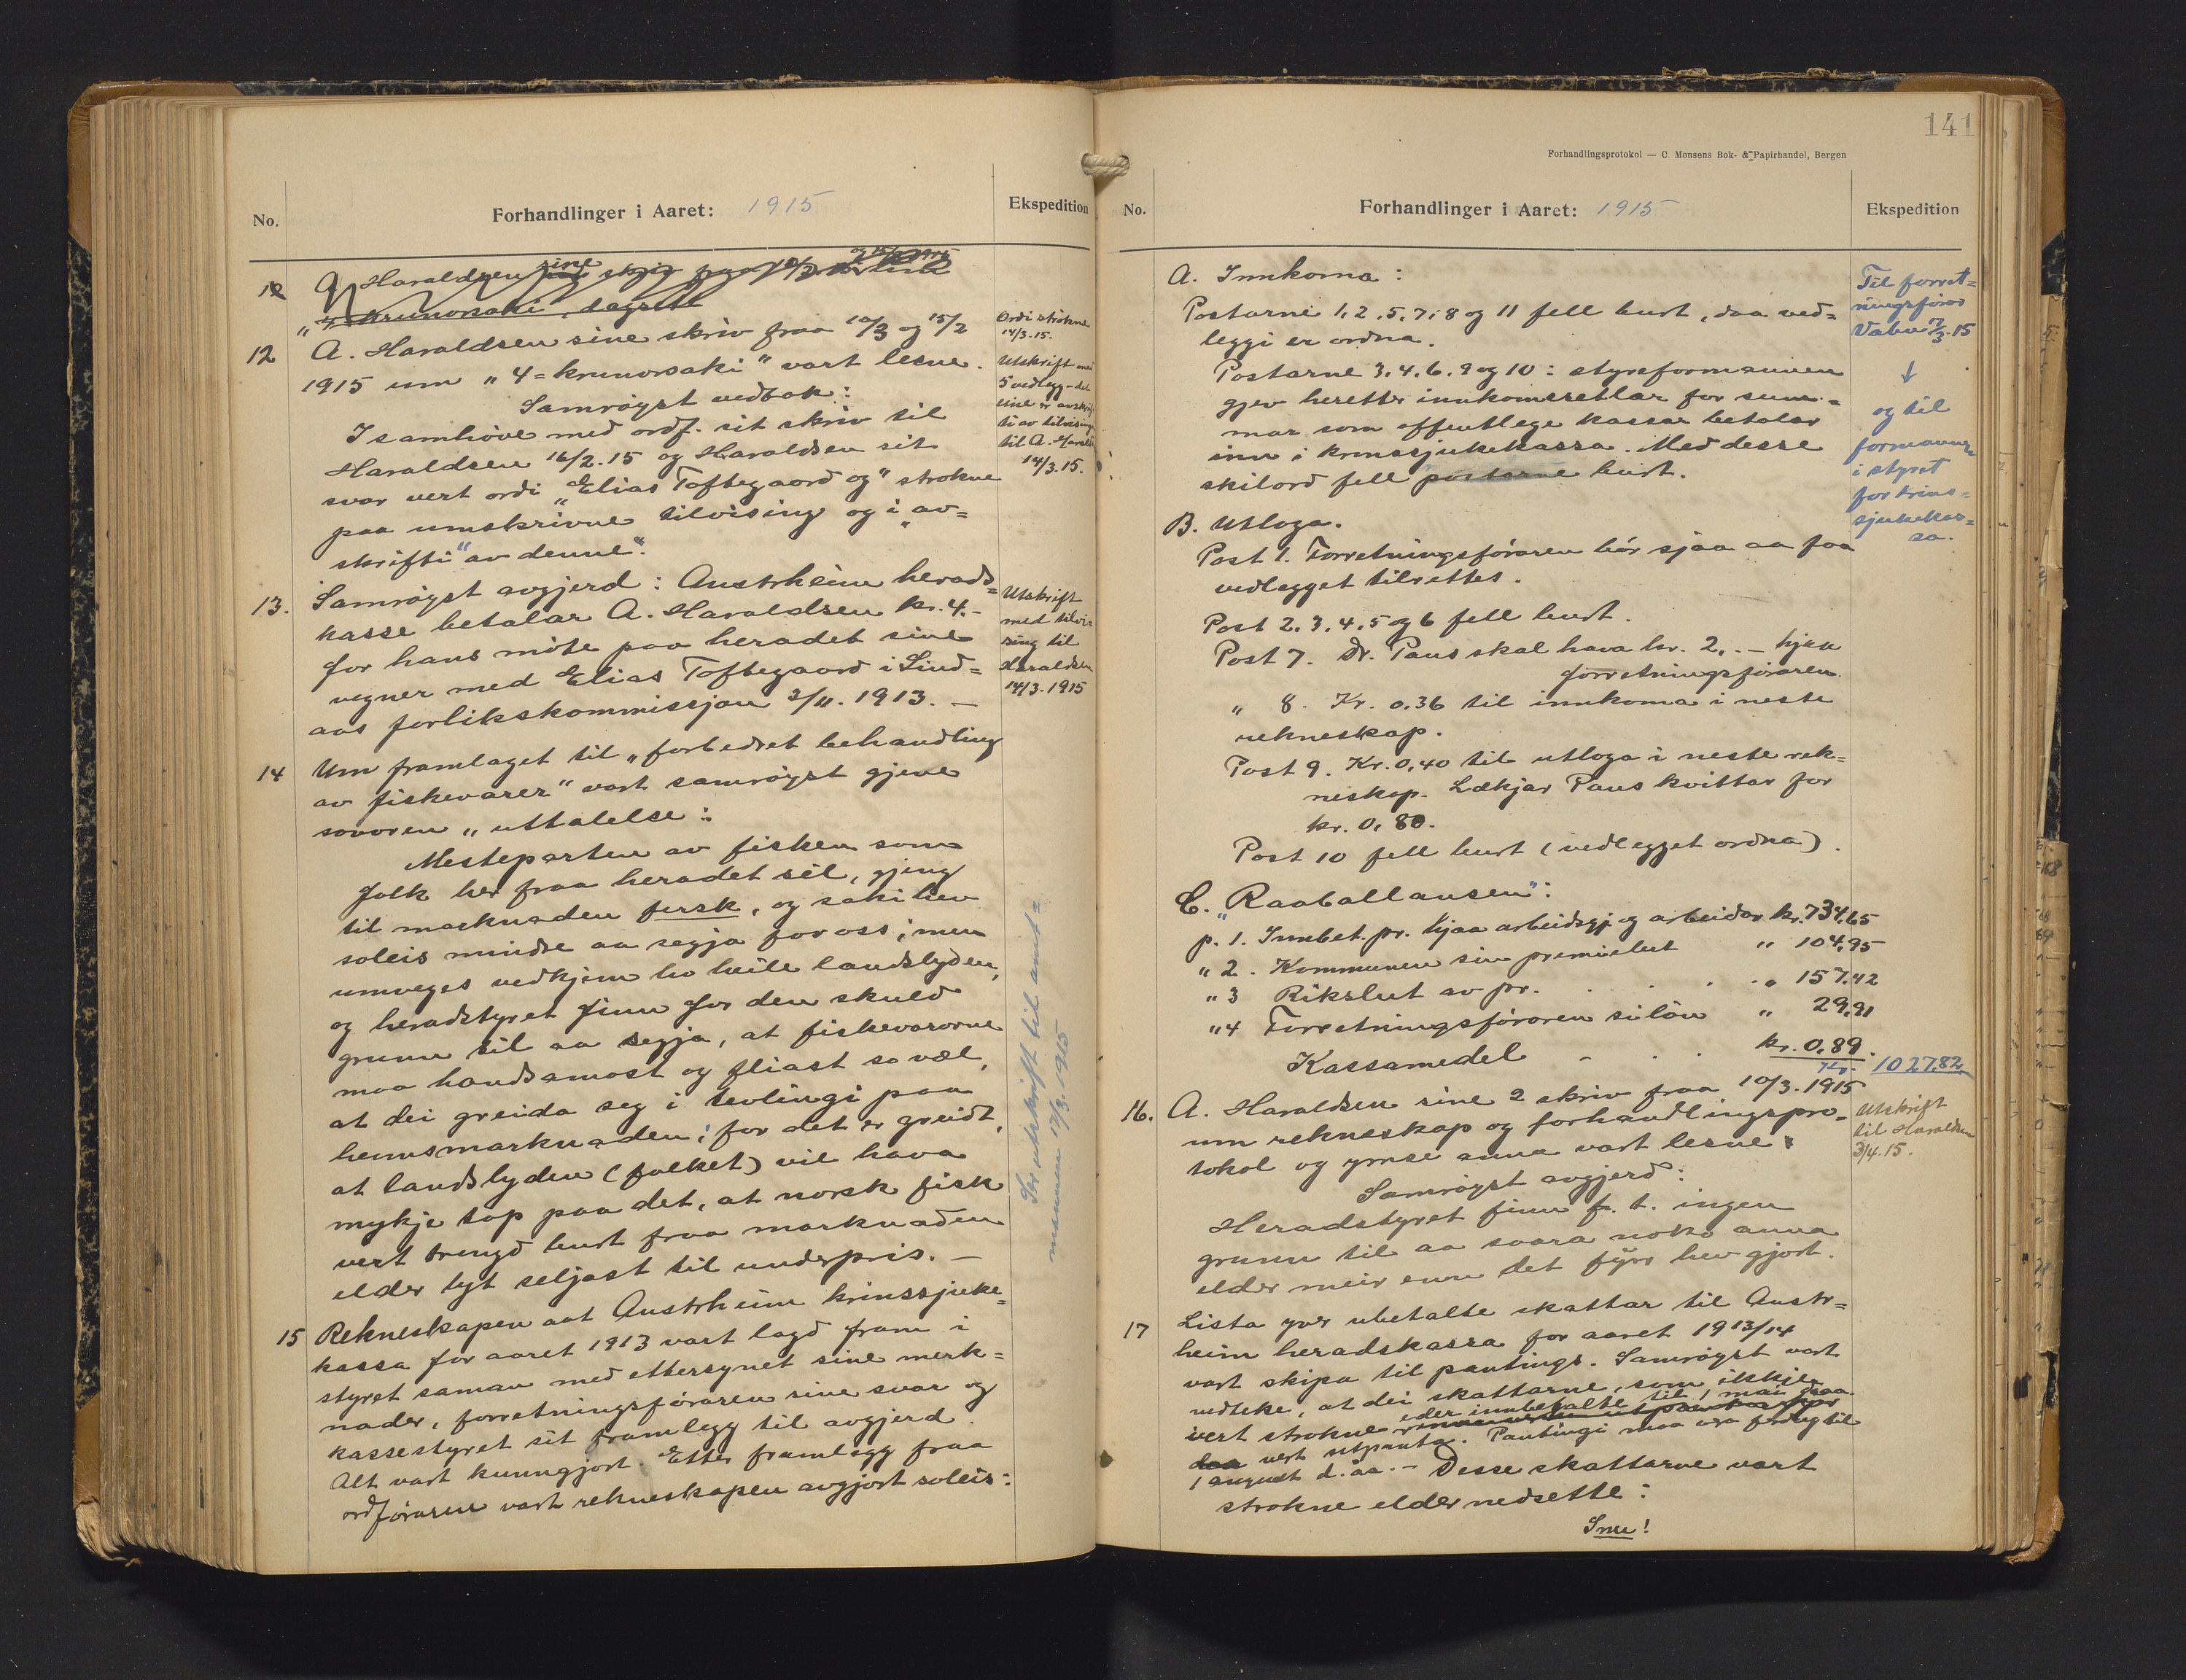 No.
Forhandlinger i Aaret: 1915
Ekspedition
12
A. Haraldsen sine skriv fraa 10/3 og 15/2
"4-krunorsaki", dagsett
12 A. Haraldsen sine skriv fraa 10/3 og 15/2
1915 um "4-krunorsaki" vart lesne.
Samrøyst vedtak:
I samhøve med ordf. sit skriv til
Haraldsen 16/2.15 og Haraldsen sit
svar vert ordi "Elias Toftegaard og" strokne
paa umskrivne tilvising og i "av=
skrifti" av denne".
Ordi strokne
14/3.15.
Utskrift med
5 vedlegg - det
eine er avskrif
ti av tilvisingi
til A. Haralds
14/3.15.
13. Samrøyst avgjerd: Austrheim herads=
kasse betalar A. Haraldsen kr. 4.-
for hans møte paa heradet sine
vegner med Elias Toftegaard i Lind=
aas forlikskommissjon 3/11. 1913. -
Utskrift
med tilvi=
sing til
Haraldsen
14/3-1915
14 Um framlaget til "forbedret behandling
av fiskevarer" vart samrøyst gjeve
sovoren "uttalelse":
Mesteparten av fisken som
folk her fraa heradet sel, gjeng
til marknaden fersk, og saki hev
soleis mindre aa segja for oss; men
umveges vedkjem ho heile landslyden,
og heradstyret finn for den skuld
grunn til aa segja, at fiskevarorne
maa handsamast og fliast so væl,
at dei greida seg i tevlingi paa
heimsmarknaden; for det er greidt,
at landslyden (folket) vil hava
mykje tap paa det, at norsk fisk
vert trengd burt fraa marknaden
elder lyt seljast til underpris. -
Ser. utskrift til amt=
mannen 17/3. 1915
15 Rekneskapen aat Austrheim krinssjuke=
kassa for aaret 1913 vart lagd fram i
styret saman med ettersynet sine merk=
nader, forretningsføraren sine svar og
kassestyret sit framlegg til avgjerd.
Alt vart kunngjort. Etter framlegg fraa
ordføraren vart rekneskapen avgjort soleis:
141
Forhandlingsprotokol — C. Monsens Bok- & Papirhandel, Bergen
No.
Forhandlinger i Aaret: 1915
Ekspedition
A. Innkoma:
Postarne 1, 2, 5, 7, 8 og 11 fell burt, daa ved=
leggi er ordna.
Postarne 3, 4, 6, 9 og 10: styreformannen
gjev heretter innkomesetlar for sum=
mar som offentlege kassar betalar
inn i krinssjukekassa. Med desse
skilord fell postarne burt.
Til forret=
ningsførar
Vabø 17/3.15
↓
og til
formannen
i styret
for krins=
sjukekas=
sa.
B. Utloga.
Post 1. Forretningsføraren bør sjaa aa faa
vedlegget tilrettes.
Post 2, 3, 4, 5 og 6 fell burt.
Post 7. Dr. Paus skal hava kr. 2,. - hjaa
forretningsføraren.
" 8. Kr. 0.36 til innkoma i neste
rekneskap.
Post 9. Kr. 0,40 til utloga i neste rek=
neskap. Lækjar Paus kvittar for
kr. 0,80.
Post 10 fell burt (vedlegget ordna).
C. "Raaballansen":
p. 1. Innbet. pr. hjaa arbeidsgj og arbeidar kr. 734,65
" 2. Kommunen sin premielut " 104,95
" 3 Rikslut av pr. . . . . " 157,42
" 4 Forretningsføraren si løn " 29,91
Kassamedel - . . kr. 0,89.
Kr. 1027,82
16. A. Haraldsen sine 2 skriv fraa 10/3. 1915
um rekneskap og forhandlingspro=
tokol og ymse anna vart lesne.
Samrøyst avgjerd:
Heradstyret finn f. t. ingen
grunn til aa svara noko anna
elder meir enn det fyrr hev gjort.
Utskrift
til Haraldsen
3/4.15.
17 Lista yver ubetalte skattar til Austr=
heim heradskassa for aaret 1913/14
vart skipa til pantings. Samrøyst vart
vedteke, at dei skattarne, som ikkje
vert strokne elder innbetalte til 1 mai fraa
daa vert utpanta. Pantingi maa vera ferdug til
1 august d. aa. - Desse skattarne vart
strokne elder nedsette:
Snu!